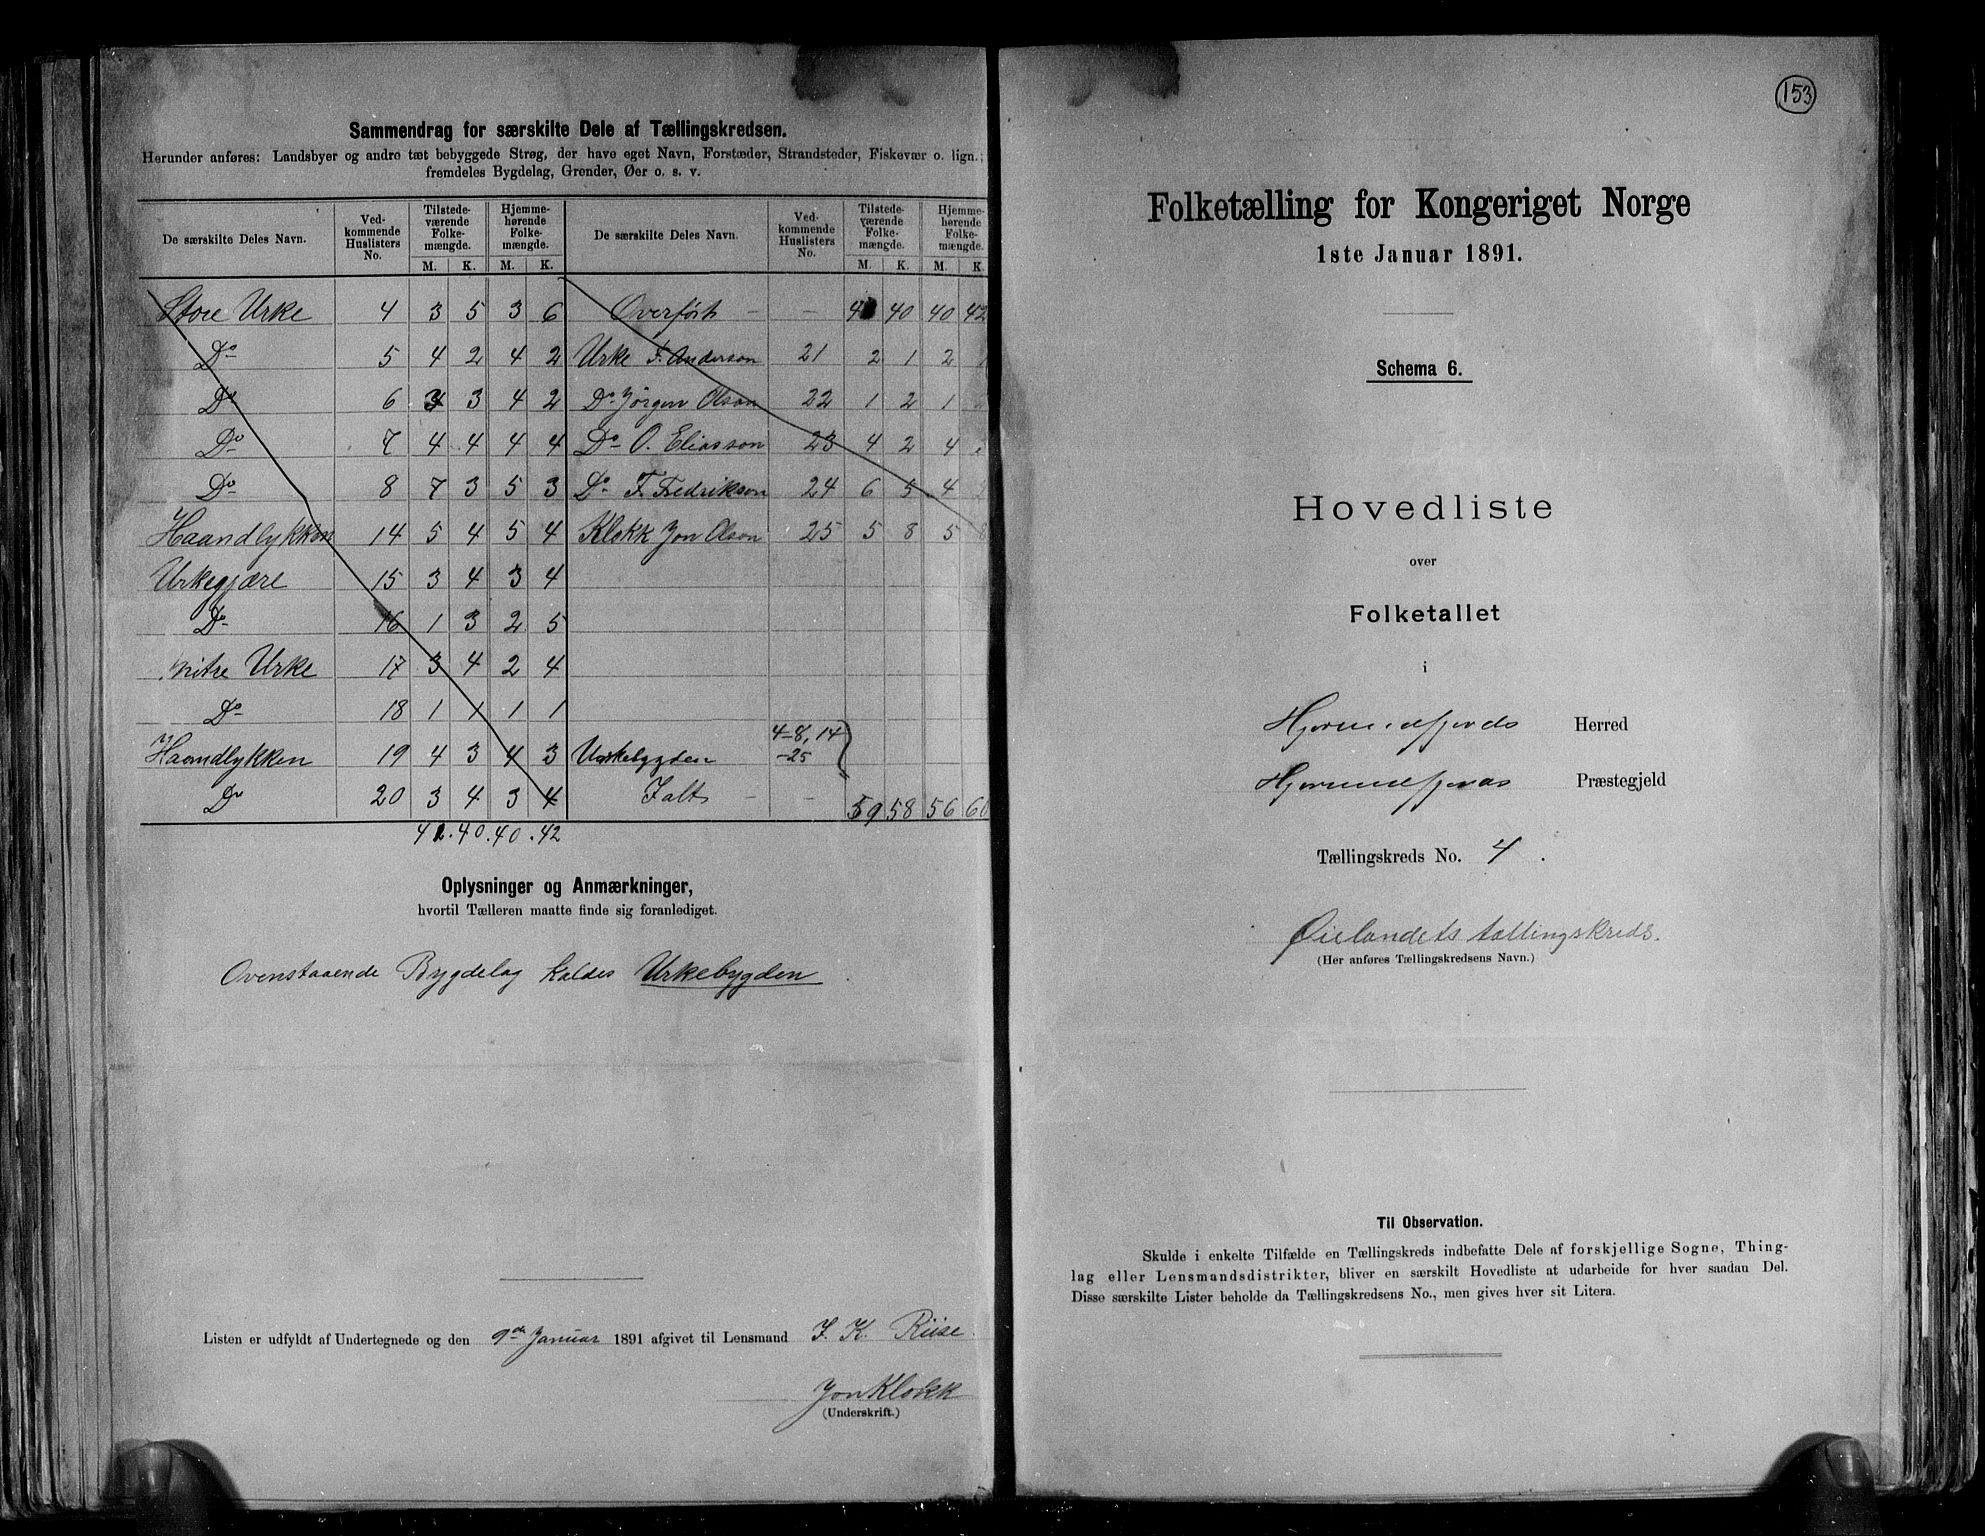 Sammendrag for særskilte Dele af Tællingskredsen.
Herunder anføres: Landsbyer og andre tæt bebyggede Strøg, der have eget Navn, Forstæder, Strandsteder, Fiskevær o. lign.;
fremdeles Bygdelag, Grender, Øer o. s. v.
De særskilte Deles Navn. Vedkommende Huslisters No. Tilstedeværende Folkemængde. M. K. Hjemmehørende Folkemængde. M. K. De særskilte Deles Navn. Vedkommende Huslisters No. Tilstedeværende Folkemængde. M. K. Hjemmehørende Folkemængde. M. K.
Store Urke 4 3 5 3 6 Overført - - 40 40 42
Do 5 4 2 4 2 Urke F. Anderson 21 2 1 2
Do 6 3 4 2 Do Jørgen Olson 22 1 2 1
Do 7 4 4 4 4 Do O. Eliasson 23 4 2 4
Do 8 7 3 5 3 Do F. Fredrikson 24 6 5 4
Haandlykken 14 5 4 5 4 Klokk Jon Olson 25 5 8 5 8
Urkegjære 15 3 4 3 4
Do 16 1 3 2 5
mitre Urke 17 3 4 2 4
Do 18 1 1 1 1
Haandlykken 19 4 3 4 3 Urkebygden 4-8, 14-25
Do 20 3 4 3 4 Ialt - - 59 58 56
42. 40. 40. 42
Oplysninger og Anmærkninger,
hvortil Tælleren maatte finde sig foranlediget.
Ovenstaaende Bygdelag kaldes Urkebygden
Listen er udfyldt af Undertegnede og den 9de Januar 1891 afgivet til Lensmand J. K. Riise.
Jon Klokk
(Underskrift.)
153
Folketælling for Kongeriget Norge
1ste Januar 1891.
Schema 6.
Hovedliste
over
Folketallet
i
Hjørundfjords Herred
Hjørundfjords Præstegjeld
Tællingskreds No. 4.
Øielandets tællingskreds.
(Her anføres Tællingskredsens Navn.)
Til Observation.
Skulde i enkelte Tilfælde en Tællingskreds indbefatte Dele af forskjellige Sogne, Thing-
lag eller Lensmandsdistrikter, bliver en særskilt Hovedliste at udarbeide for hver saadan Del.
Disse særskilte Lister beholde da Tællingskredsens No., men gives hver sit Litera.